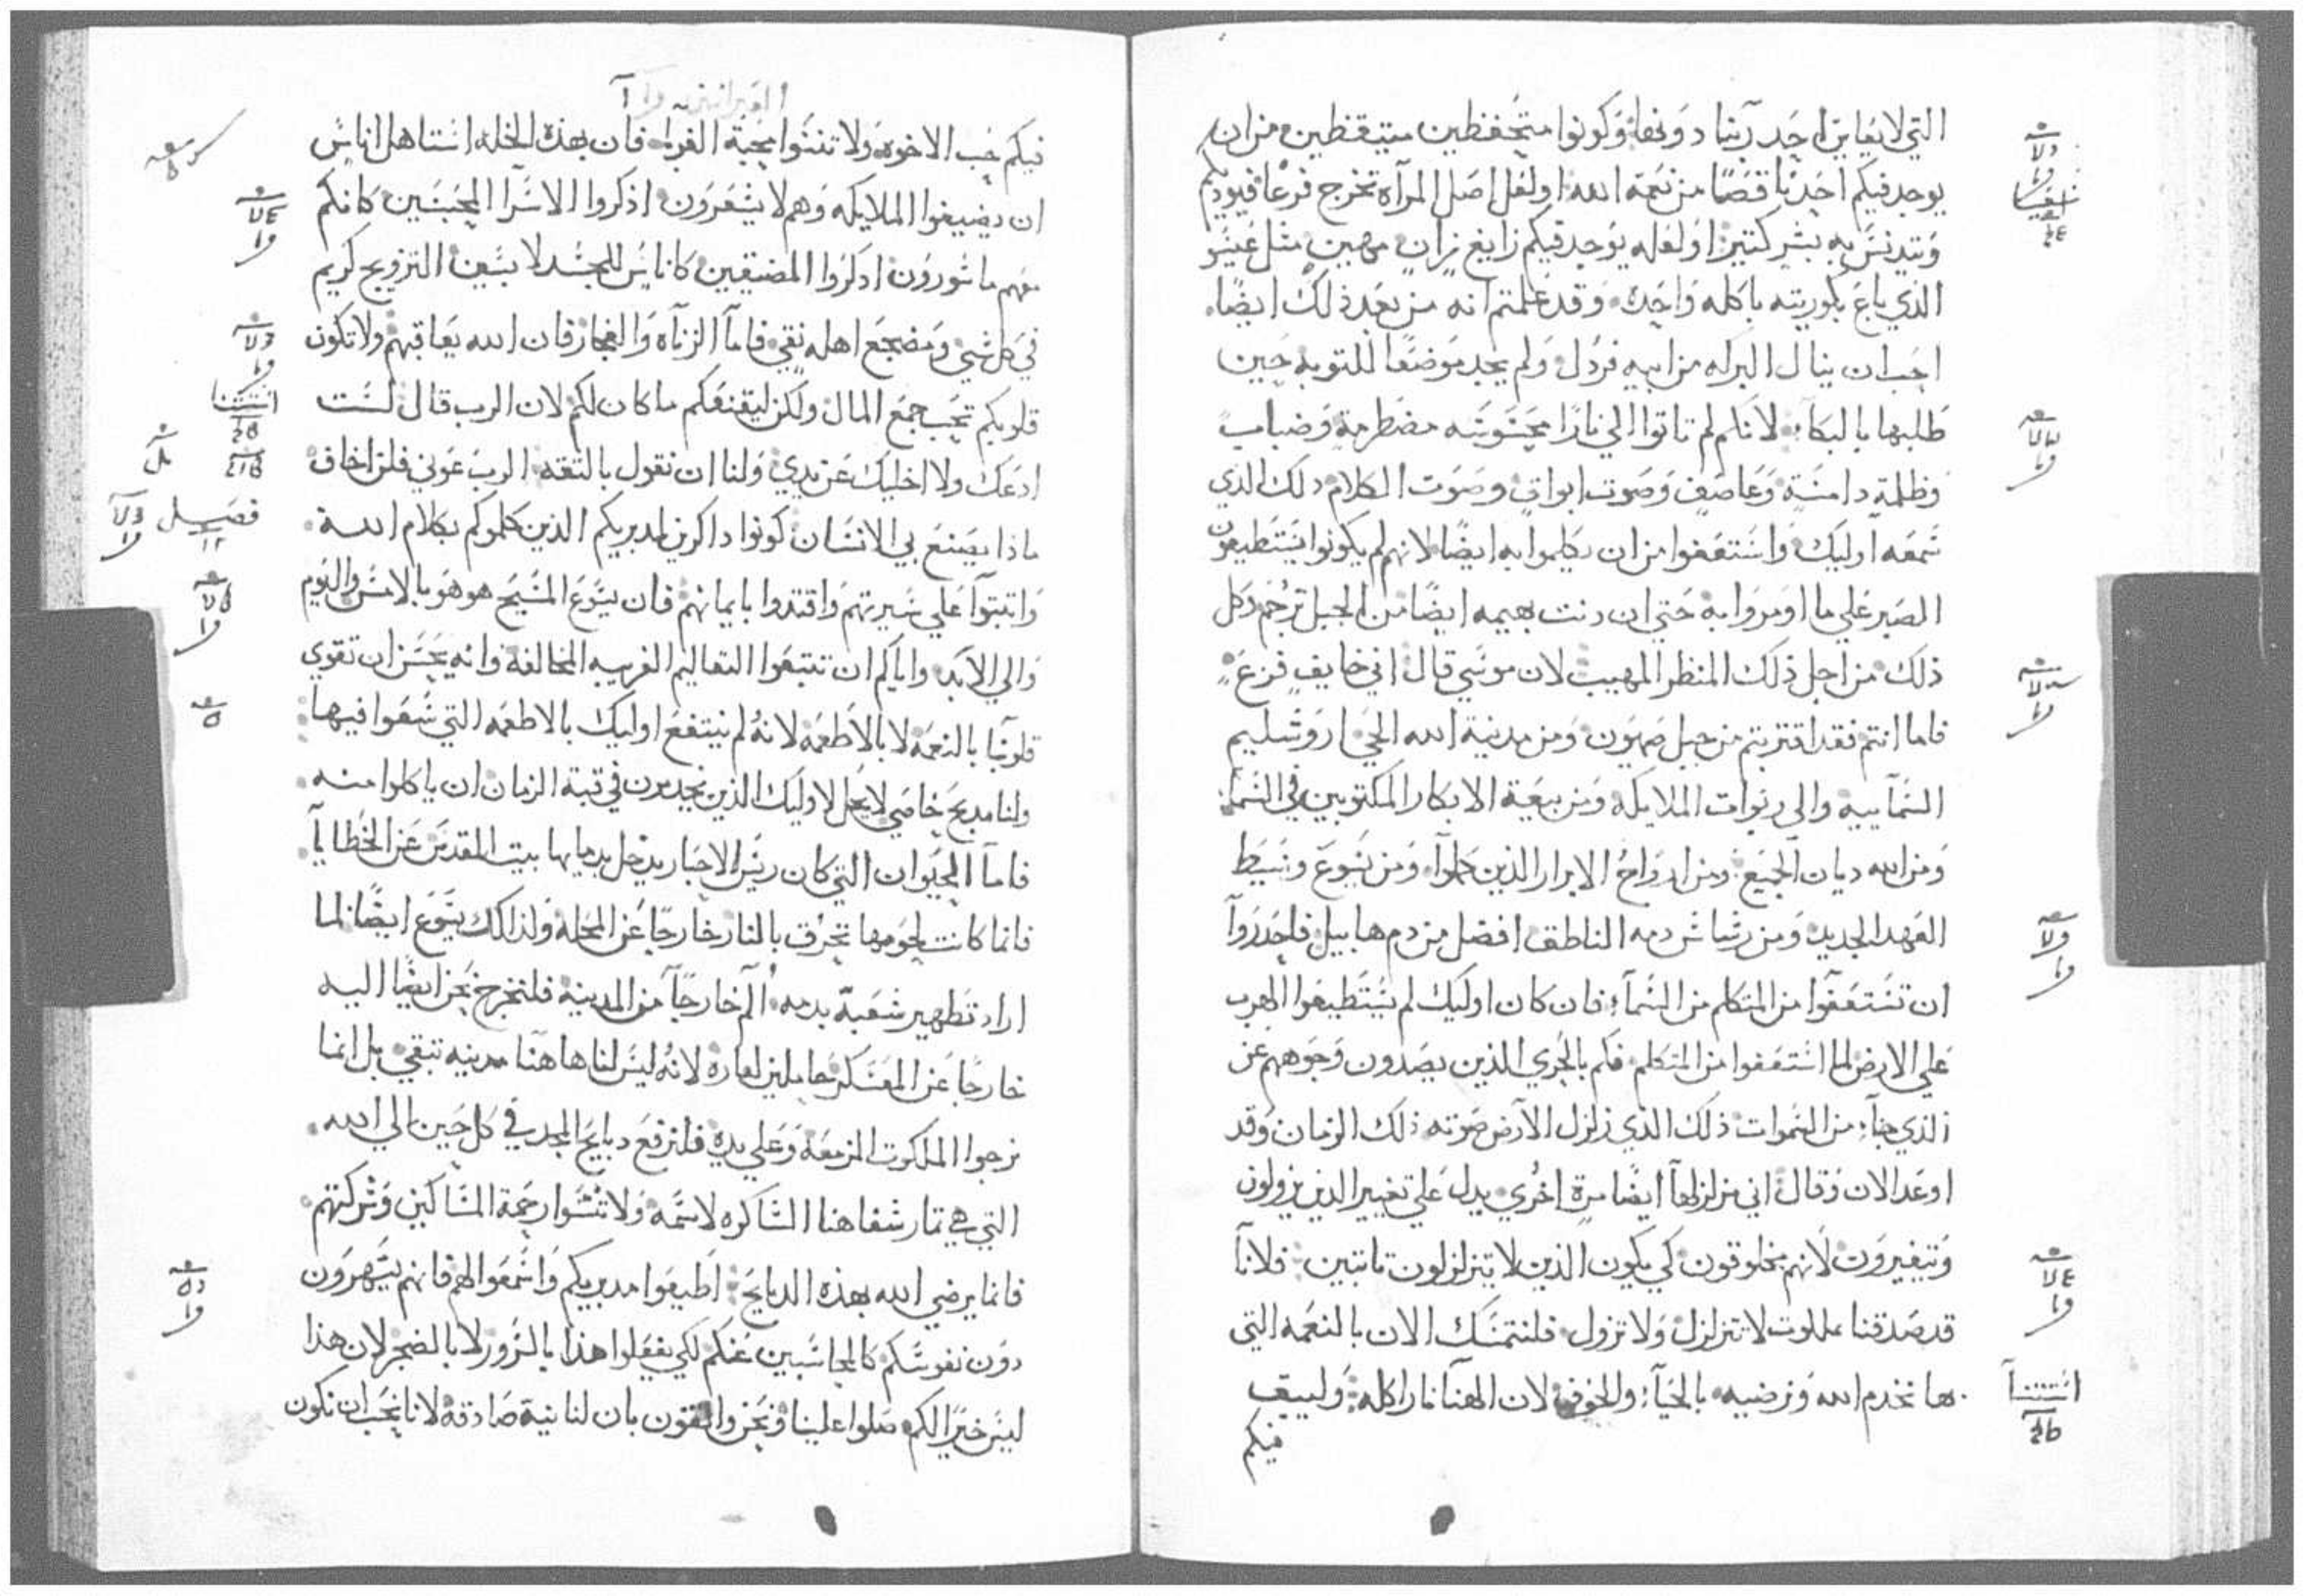 التي لا يعاين احد ربنا دونها وكونوا متحفظين متيقظين من ان
يوجد فيكم احد ناقصا من نعمة الله او لعل اصل المرآه تخرج فرعا فيوديكم
ويتدنس به بشر كتير او لعله يوجد فيكم زايغ زان مهين مثل عيسو
الذي باع بكوريته باكله واحده وقد علمتم انه من بعد ذلك ايضا
احب ان ينال البركه من ابيه فردل ولم يجد موضعا للتوبه حين
طلبها بالبكآء لانكم لم تاتوا الي نارا محسوسه مضطرمة وضباب
وظلمة دامسة وعاصف وصوت ابواق وصوت الكلام دلك الذي
سمعه اوليك واستعفوا من ان يكلموا به ايضا لانهم لم يكونوا يستطيعون
الصبر علي ما اومروا به حتي ان دنت بهيمه ايضا من الجبل ترجم وكل
ذلك من اجل ذلك المنظر المهيب لان موسي قال اني خايف فزع
فاما انتم فقد اقتربتم من جبل صهيون ومن مدينة الله الحي اروشليم
السمآييه والي ربوات الملايكه ومن بيعة الابكار المكتوبين في السمآء
ومن الله ديان الجميع ومن ارواح الابرار الذين كملوآ ومن يسوع وسيط
العهد الجديد ومن رشاش دمه الناطق افضل من دم هابيل فاحدروآ
ان تستعفوا من المتكلم من السمآء فان كان اوليك لم يستطيعوا الهرب
علي الارض لما استعفوا من المتكلم فكم بالحري الذين يصدون وجوههم عن
الذي جآء من السموات ذلك الذي زلزل الآرض صوته ذلك الزمان وقد
اوعد الان وقال اني مزلزلهآ ايضا مرة اخري يدل علي تغيير الذين يزولون
ويتغيرون لانهم مخلوقون كي يكون الذين لا يتزلزلون تابتين فلانآ
قد صدقنا بملكوت لا تتزلزل ولا تزول فلنتمسك الان بالنعمه التي
بها نخدم الله ونرضيه بالحيآء والخوف لان الهنآ نار اكله وليبق
فيكم
العبرانيين
فيكم حب الاخوه ولا تنسوا محبة الغربا فان بهذه الخله استاهل اناس
ان يضيفوا الملايكه وهم لا يشعرون اذكروا الاسرا المحبسين كانكم
معهم ماسورون ادكروا المضيقين كاناس للجسد لابسين التزويج كريم
في كل شي ومضجع اهله نقي فامآ الزناه والفجار فان الله يعاقبهم ولا تكون
قلوبكم تحب جمع المال ولكن ليقنعكم ما كان لكم لان الرب قال لست
ادعك ولا اخليك عن يدي ولنا ان نقول بالتقه الرب عوني فلن اخاف
ماذا يصنع بي الانسان كونوا داكرين لمدبريكم الذين كلموكم بكلام الله
واتبتوآ علي سيرتهم واقتدوا بايمانهم فان يسوع المسيح هو هو بالامس واليوم
والي الابد واياكم ان تتبعوا التعاليم الغريبه المخالفة وانه يحسن ان تقوي
قلوبنا بالنعمه لا بالاطعمه لانه لم ينتفع اوليك بالاطعمه التي سعوا فيها
ولنا مدبح خاصي لا يحل لاوليك الذين يخدمون في قبة الزمان ان ياكلوا منه
فامآ الحيوان التي كان ريس الاحبار يدخل بدمايها بيت المقدس عن الخطايآ
فانما كانت لحومها تحرق بالنار خارجا عن المحله ولذلك يسوع ايضا لما
اراد تطهير شعبه بدمه آلم خارجآ من المدينه فلنخرج نحن ايضا اليه
خارجا عن المعسكر حاملين لعاره لانه ليس لنا هاهنا مدينه تبقي بل انما
نرجوا الملكوت المزمعة وعلي يديه فلنرفع دبايح المجد في كل حين الي الله
التي هي تمار شفاهنا الشاكره لاسمه ولا تنسوا رحمة المساكين وشركتهم
فانما يرضي الله بهذه الدبايح اطيعوا مدبريكم واسمعوا لهم فانهم يسهرون
دون نفوسكم كالمحاسبين عنكم لكي يفعلوا هذا بالسرور لا بالضجر لان هذا
ليس خيرا لكم صلوا علينا ونحن واتقون بان لنا نية صادقه لانا نحب ان نكون
فصل